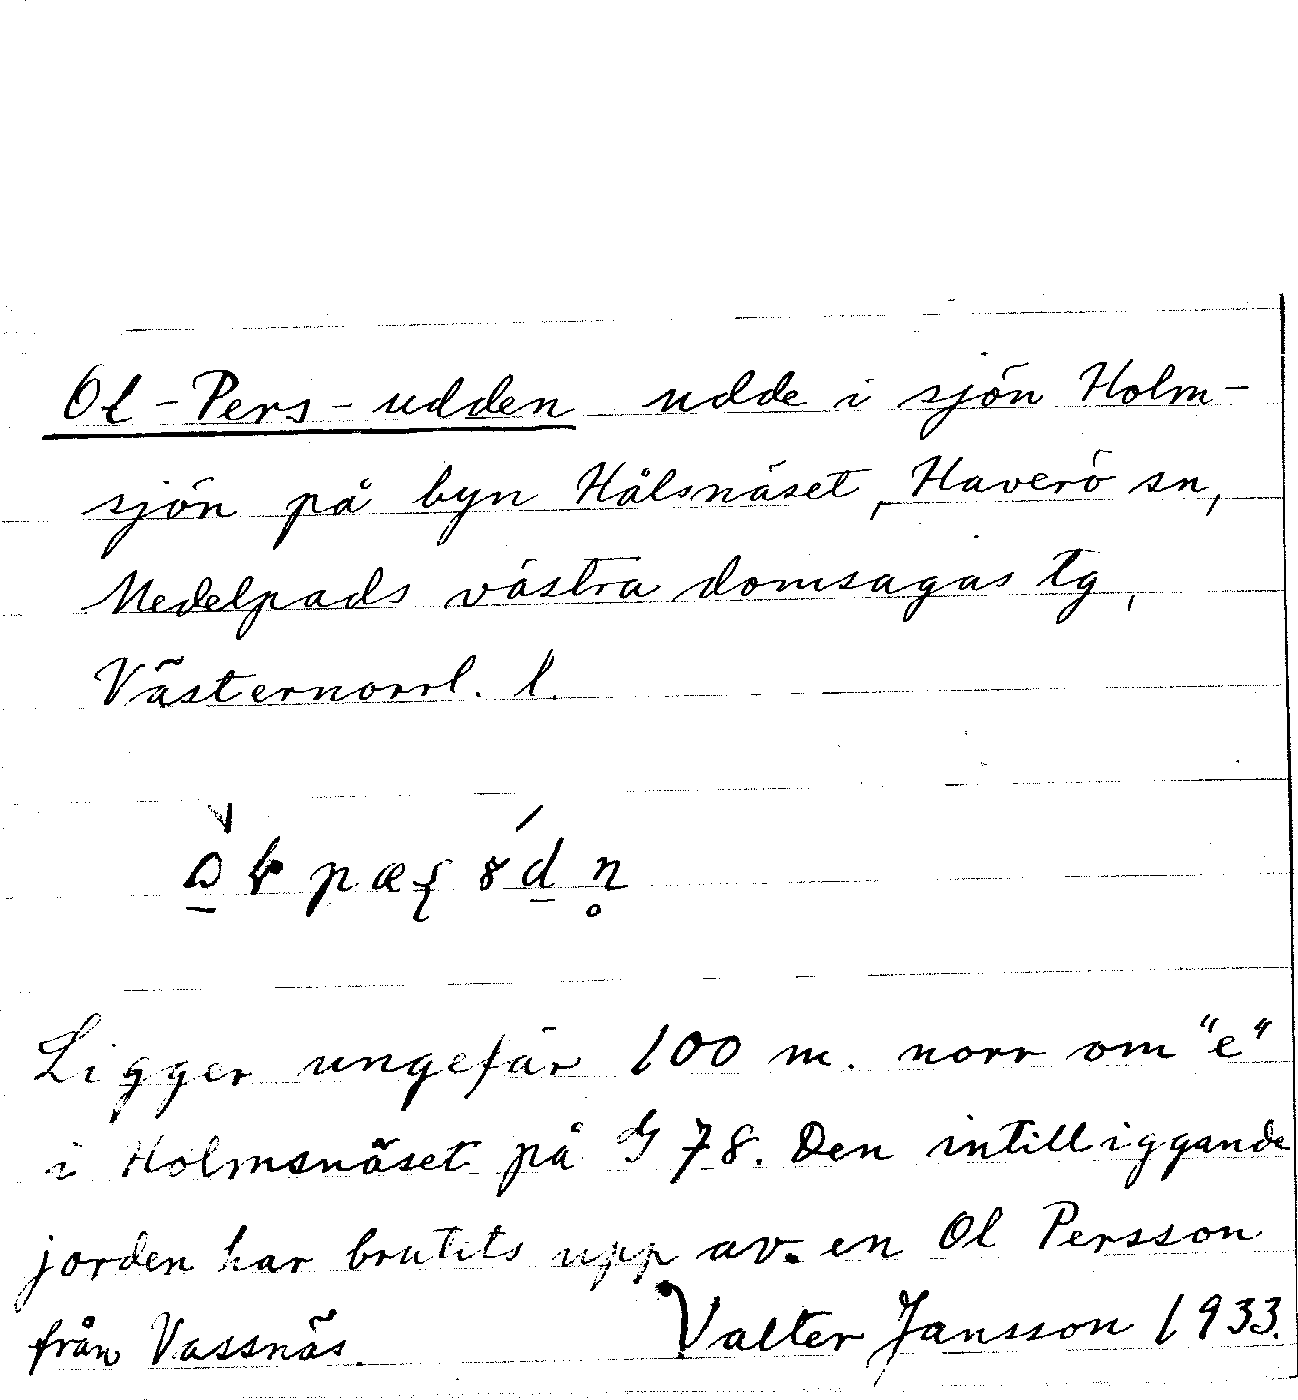 Ol-Pers-udden udde i sjön Holm-
sjön på byn Hålsnäset, Haverö sn,
Medelpads västra domsagas tg,
Västernorrl. l.
Ligger ungefär 100 m. norr om "e"
i Holmsnäset på G 78. Den intilliggande
jorden har brutits upp av en Ol Persson
från Vassnäs.
Valter Jansson 1933.